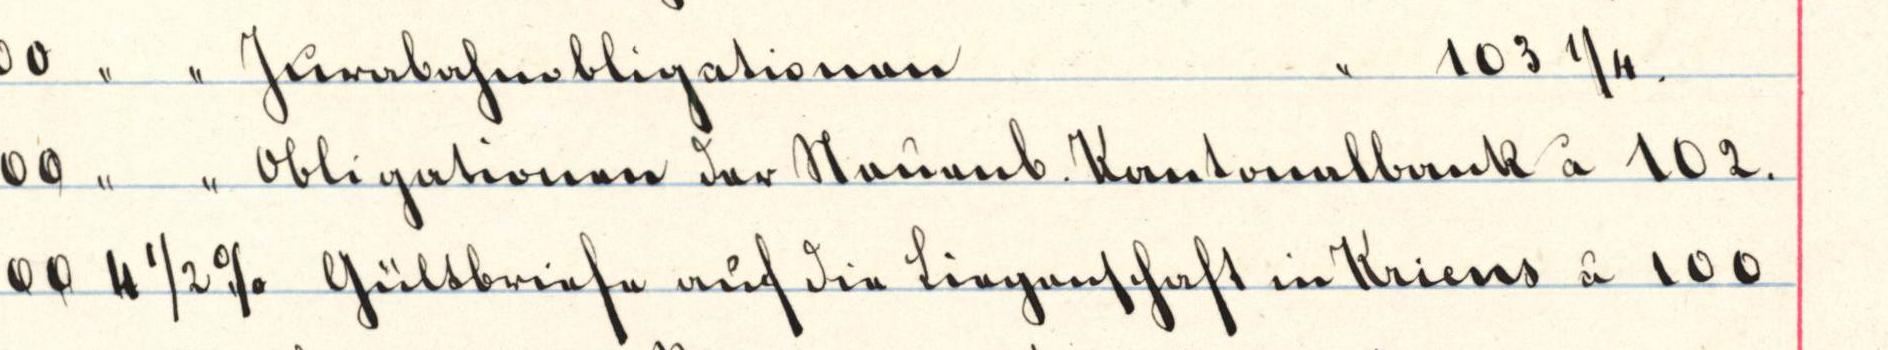 00 " " Jurabahnobligationen " 103 1/4.
00 " " Obligationen der Neuenb. Kantonalbank à 102.
00 4 1/2 % Gültbriefe auf die Liegenschaft in Kriens à 100